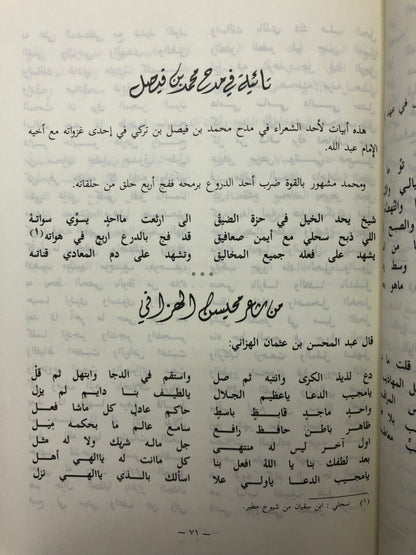 تائية في مدح محمد بن فيصل
هذه أبيات لأحد الشعراء في مدح محمد بن فيصل بن تركي في إحدى غزواته مع أخيه
الإمام عبد الله.
ومحمد مشهور بالقوة ضرب أحد الدروع برمحه ففج أربع حلق من حلقاته.
شيخ يحد الخيل في حزة الضيق الى ارتعت مااحد يسوِّي سواتة
اللي ذبح سحلي مع أيمن صعافيق قد فج بالدرع اربع في هواته (١)
يشهد على فعله جميع المخاليق وتشهد على دم المعادي قناته
من شعر محسن الهزاني
قال عبد المحسن بن عثمان الهزاني:
دع لذيذ الكرى وانتبه ثم صل واستقم في الدجا وابتهل ثم قل
يامجيب الدعا ياعظيم الجلال يالطيف بنا دايم لم يزل
واحد ماجد قابض باسط حاكم عادل كل ماشا فعل
ظاهر باطن حافظ رافع سامع عالم ما بحكمه ميل
اول آخر ليس له منتهى جل ماله شريك ولا له مثل
بعد لطفك بنا يا الله افعل بنا كل ماانت له ياالهي أهل
يامجيب الدعا ياولي علا اسألك بالذي ياالهي نزل
(١) سحلي: ابن سقيان من شيوخ مطير.
— ٧١ —